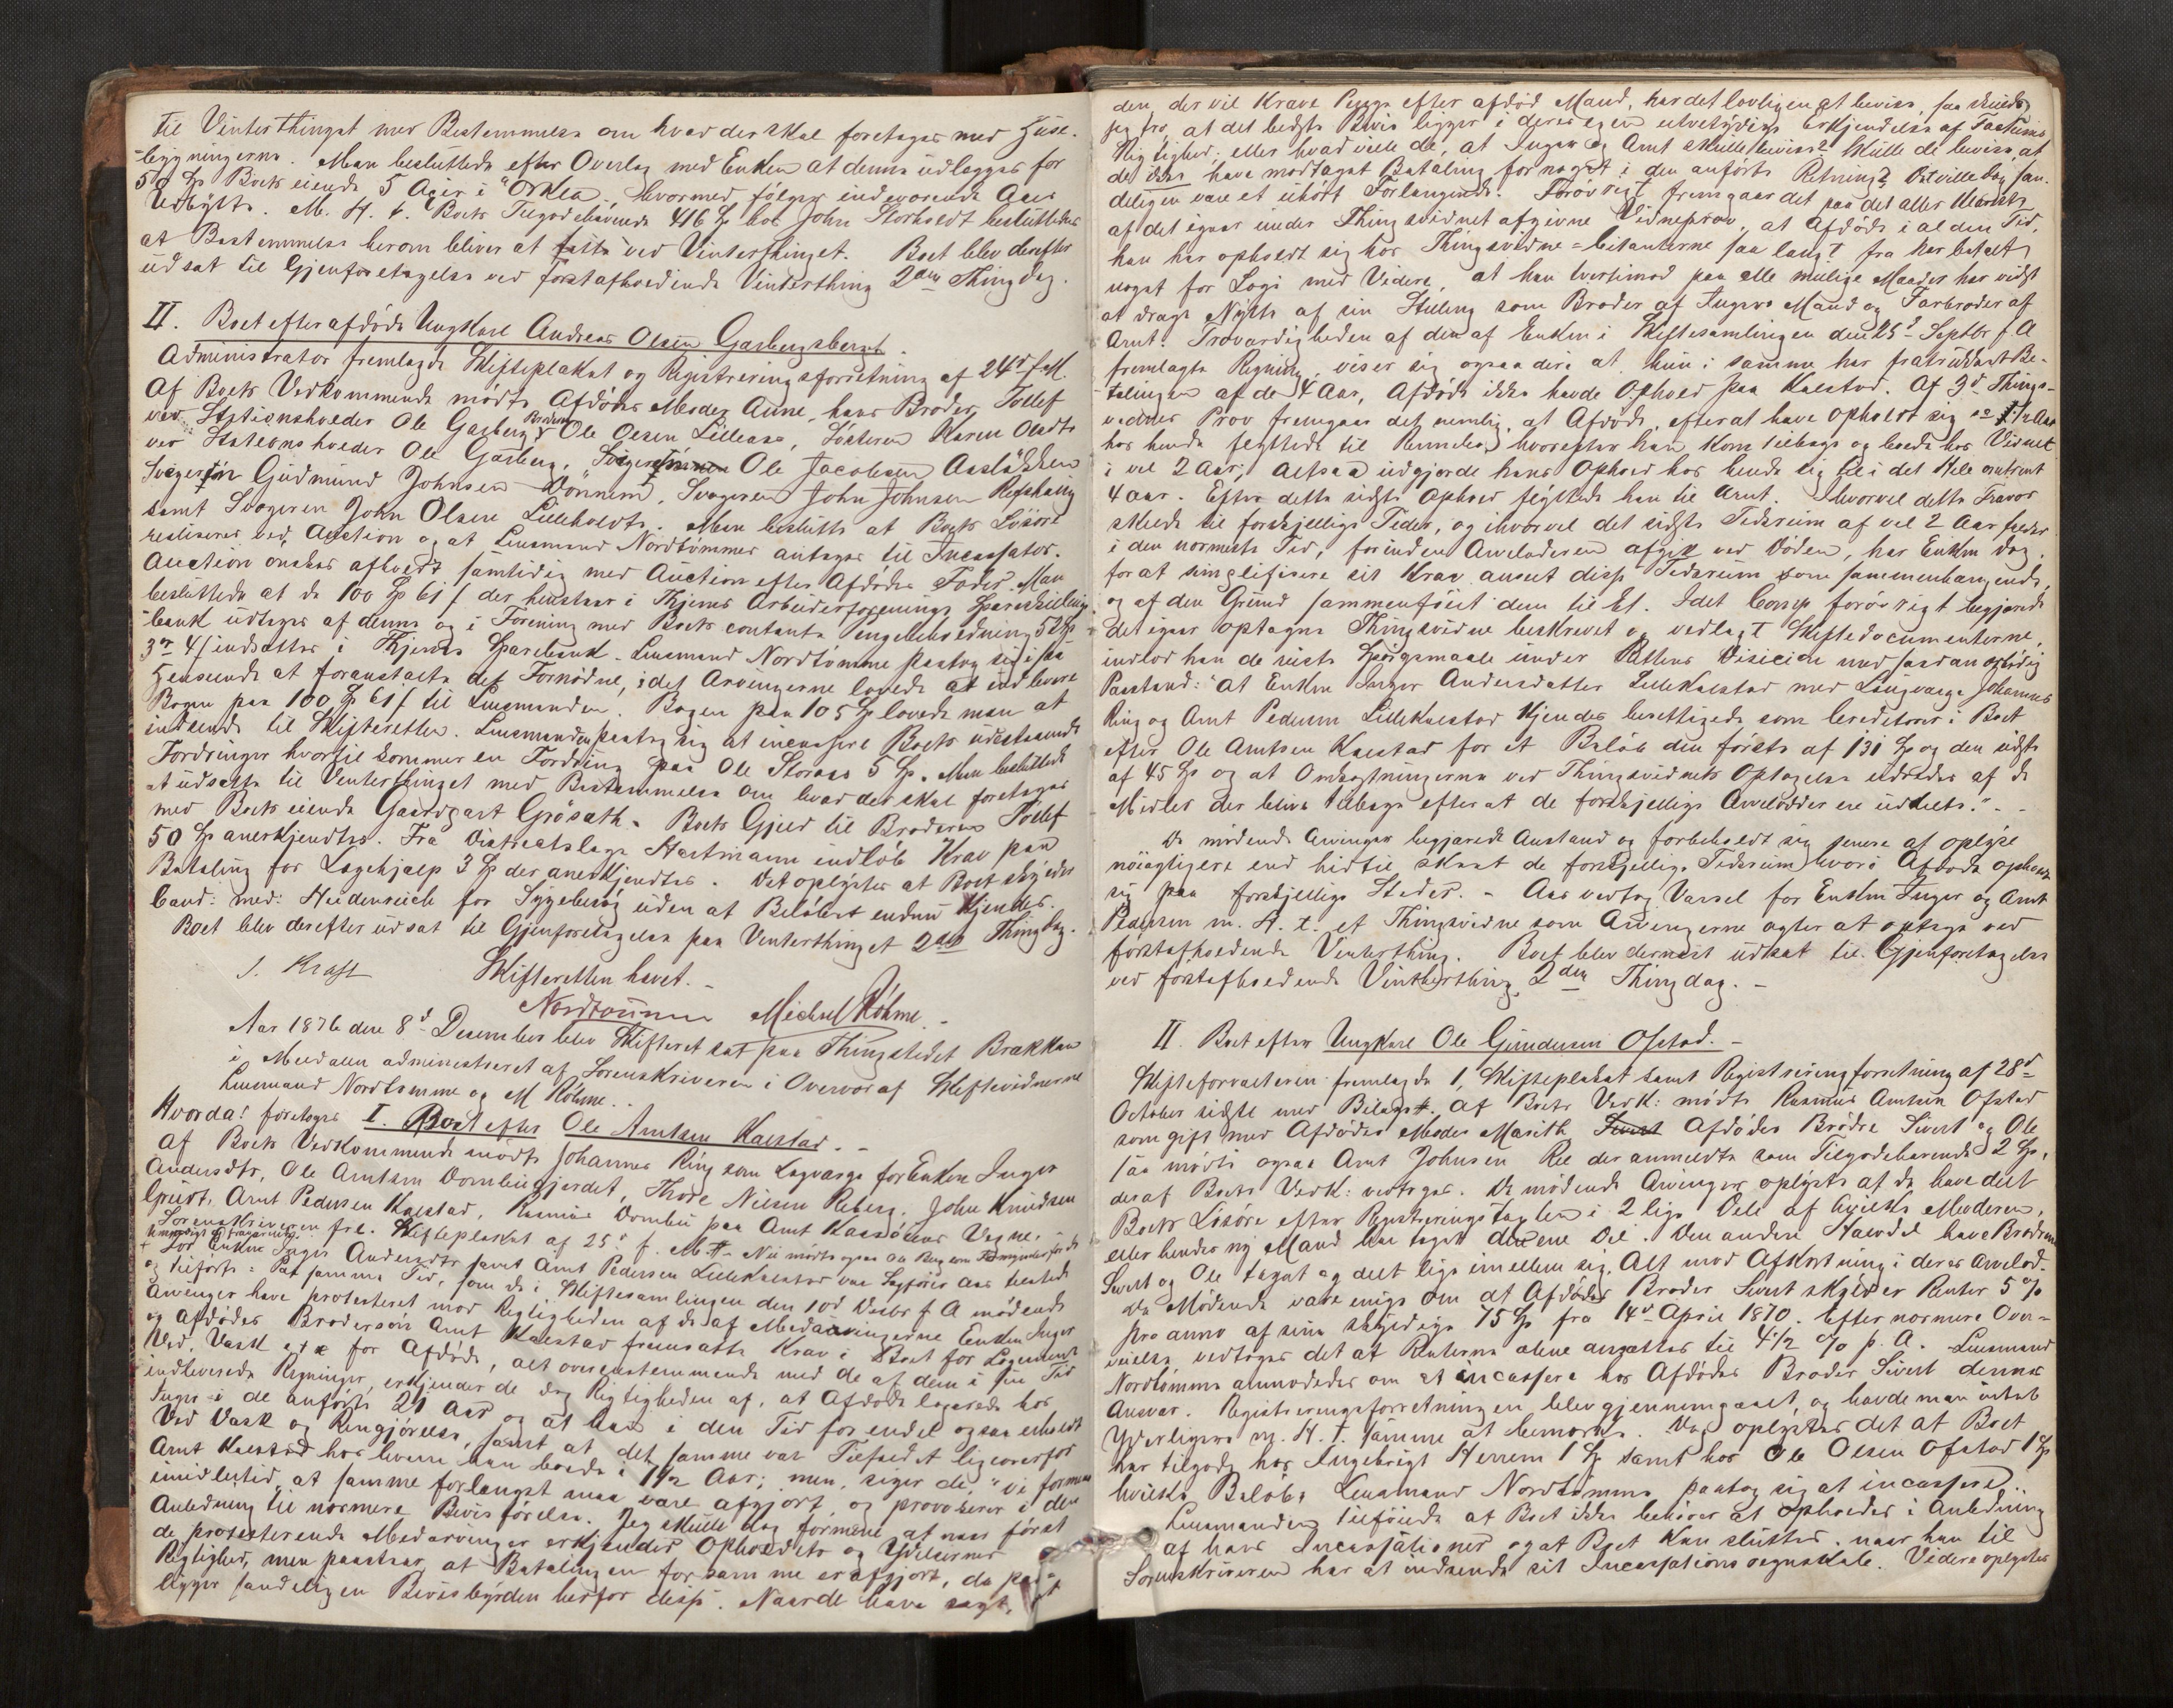 til Vinterthinget med Bestemmelse om hvad der skal foretages med Huse-
bygningerne. Man besluttede efter Overlæg med Enken at denne udlægges for
50 Sp Boets eiende 5 Acier i "Orkla", hvormed følger indeværende Aars
Udbytte. M. H. t. Boets Tilgodehavende 416 Sp hos John Storholdt besluttedes
at Bestemmelse herom bliver at fatte ved Vinterthinget. Boet blev derefter
udsat til Gjenforetagelse ved førstafholdende Vinterthing 2den Thingdag.
II. Boet efter afdøde Ungkarl Andreas Olsen Garbergsberget.
Administrator fremlagde Skifteplakat og Registreringsforretning af 24de f. M.
Af Boets Vedkommende mødte Afdødes Moder Anne, hans Broder Tollef
ved Stationsholder Ole Garberg, Broderen Ole Olsen Lilleaas, Søsteren Karen Olsdtr
ved Stationsholder Ole Garberg, Svogeren Ole Jacobsen Aslakken
Svogeren Gudmund Johnsen Dønnem, Svogeren John Johnsen Refshaug
samt Svogeren John Olsen Lilleholdt. Man besluttede at Boets Løsøre
realiseres ved Auction og at Lensmand Nordtømmer antages til Incassator.
Auction ønskes afholdt samtidig med Auction efter Afdødes Fader. Man
besluttede at de 100 Sp 61 s der henstaar i Kjerns Arbeiderforenings Spareskillings-
bank udtages af denne og i Forening med Boets contante Pengebeholdning 52 Sp
3 ort 4 s indsættes i Kjerns Sparebank. Lensmand Nordtømme paatog sig i saa
Henseende at foranstalte det Fornødne, idet Arvingerne lovede at indlevere
Bogen paa 100 Sp 61 s til Lensmanden. Bogen paa 105 Sp lovede man at
indsende til Skifteretten. Lensmanden paatog sig at incassere Boets udestaaende
Fordringer hvortil kommer en Fordring paa Ole Storaas 5 Sp. Man besluttede
at udsætte til Vinterthinget med Bestemmelse om hvad der skal foretages
med Boets eiende Gaardpart Grøsæth. Boets Gjæld til Broderen Tollef
50 Sp anerkjendtes. Fra Districtslæge Hartmann indløb Krav paa
Betaling for Lægehjælp 3 Sp der anerkjendtes. Det oplystes at Boet skylder
Cand: med: Heidenreich for Sygebesøg uden at Beløbet endnu kjendes.
Boet blev derefter udsat til Gjenforetagelse paa Vinterthinget 2den Thingdag.
S. Kraft Skifteretten hævet.
Nordtømme Michael Røhme.
Aar 1876 den 8de December blev Skifteret sat paa Thingstedet Brækken
i Meldalen administreret af Sorenskriveren i Overvær af Skiftevidnerne
Lensmand Nordtømme og M Røhme.
Hvorda! foretoges I. Boet efter Ole Arntsen Kalstad.
Af Boets Vedkommende mødte Johannes Ring som Laugværge for Enken Inger
Andersdtr, Ole Arntsen Dombugjerdet, Thore Nielsen Reberg, John Knudsen
Grut, Arnt Pedersen Kalstad, Rasmus Dombu paa Arnt Kasøens Vegne.
Sorenskriveren fre. Skifteplakat af 25de f. M. Nu mødte ogsaa
For Enken Inger Andersdtr samt Arnt Pedersen Lillekalstad var Sagfører Aas tilstede
og tilførte: Paa samme Tid, som de i Skiftesamlingen den 10de Decbr f A mødende
Arvinger have protesteret mod Rigtigheden af de af Medarvingerne Enken Inger
og Afdødes Brodersøn Arnt Kalstad fremsatte Krav i Boet for Logement
Ved, Vask etc for Afdøde, alt overensstemmende med de af dem i sin Tid
indleverede Regninger, erkjender de dog Rigtigheden af, at Afdøde logerede hos
Inger i de anførte 21 Aar og at han i den Tid for endel ogsaa erholdt
Ved Vask og Rengjørelse, samt at det samme var Tilfældet ligeoverfor
Arnt Kalstad hos hvem han boede i 1 1/2 Aar; men, siger de, "vi formene
imidlertid, at samme forlængst maa være afgjort og provocerer i den
Anledning til nærmere Bevisførelse. Jeg skulde dog formene at naar først
de protesterende Medarvinger erkjender Opholdets og Ydelsernes
Rigtighed, men paastaar, at Betalingen for samme er afgjort, da paa-
ligger sandeligen Bevisbyrden herfor disse. Naar de have sagt, at
den, der vil kræve Penge efter afdød Mand, har det lovligen at bevise, saa skulde
jeg tro, at det bedste Bevis ligger i deres egen utvetydige Erkjendelse af Factums
Rigtighed; eller hvad ville de, at Inger og Arnt skulle bevise? Skulle de bevise, at
de ikke have modtaget Betaling for noget i den anførte Retning? Det ville dog san-
deligen være et uhørt Forlangende. Forøvrigt fremgaar det paa det aller klareste
af det igaar under Thingsvidnet afgivne Vidneprov, at Afdøde i al den Tid,
han har opholdt sig hos Thingsvidne-Citanterne saa langt fra har betalt
noget for Logi med Videre, at han tvertimod paa alle mulige Maader har vidst
at drage Nytte af sin Stilling som Broder af Ingers Mand og Farbroder af
Arnt. Troværdigheden af den af Enken i Skiftesamlingen den 25de Septbr f. A
fremlagte Regning, viser sig ogsaa deri at hun i samme har fratrukket Be-
talingen af de 4 Aar, Afdøde ikke havde Ophold paa Kalstad. Af 3de Things-
vidnes Prov fremgaar det nemlig, at Afdøde, efterat have opholdt sig ca 1 1/2 Aar
hos hende flyttede til Rennebo, hvorefter han kom tilbage og boede hos Vidnet
i vel 2 Aar; altsaa udgjorde hans Ophold hos hende sig til i det Hele omtrent
4 Aar. Efter dette sidste Ophold flyttede han til Arnt. Ihvorvel dette Fravær
skede til forskjellige Tider, og ihvorvel det sidste Tidsrum af vel 2 Aar falder
i den nærmeste Tid, førinden Arveladeren afgik ved Døden, har Enken dog
for at simplificere sit Krav anseet disse Tidsrum som sammenhængende,
og af den Grund sammenføiet dem til Et. Idet Comp forøvrigt begjærede
det igaar optagne Thingsvidne beskrevet og vedlagt Skiftedocumenterne,
indlod han de reiste Spørgsmaale under Rettens Decision med saadan ærbødig
Paastand: "At Enken Inger Andersdatter Lillekalstad med Laugværge Johannes
Ring og Arnt Pedersen Lillekalstad kjendes berettigede som Creditorer i Boet
efter Ole Arntsen Kalstad for et Beløb den første af 131 Sp og den sidste
af 45 Sp og at Omkostningerne ved Thingsvidnets Optagelse udredes af de
Midler der blive tilbage efterat de forskjellige Arvelodder ere uddelte."
De mødende Arvinger begjærede Anstand og forbeholdt sig senere at oplyse
nøiagtigere end hidtil skeet de forskjellige Tidsrum hvori Afdøde opholdt
sig paa forskjellige Steder. Aas vedtog Varsel for Enken Inger og Arnt
Pedersen m. H. t. et Thingsvidne som Arvingerne agter at optage ved
førstafholdende Vinterthing. Boet blev dernæst udsat til Gjenforetagelse
ved førstafholdende Vinterthing, 2den Thingdag.
II. Boet efter Ungkarl Ole Gundersen Ofstad.
Skifteforvalteren fremlagde 1, Skifteplakat samt Registreringsforretning af 28de
October sidste med Bilag. Af Boets Vedk: mødte Rasmus Arntsen Ofstad
som gift med Afdødes Moder Marith Afdødes Brødre Sivert og Ole
saa mødte ogsaa Arnt Johnsen Ree der anmeldte som Tilgodehavende 2 Sp.
der af Boets Vedk: vedtoges. De mødende Arvinger oplyste at de have delt
Boets Løsøre efter Registreringstaxten i 2 lige Dele af hvilke Moderen,
eller hendes ny Mand har taget den ene Del. Den anden Halvdel have Brødrene
Sivert og Ole taget og delt lige imellem sig. Alt mod Afkortning i deres Arvelod.
De Mødende vare enige om at Afdødes Broder Sivert skylder Renter 5 %
pro anno af sine skyldige 75 Sp fra 14de April 1870. Efter nærmere Over-
veielse vedtoges det at Renterne alene ansættes til 4 1/2 % p. A. Lensmand
Nordtømme anmodedes om at incassere hos Afdødes Broder Sivert dennes
Ansvar. Registreringsforretningen blev gjennemgaaet, og havde man intet
Yderligere m. H. t. samme at bemærke. Dog oplystes det at Boet
har tilgode hos Ingebrigt Herrem 1 Sp samt hos Ole Olsen Ofstad 1 Sp
hvilke Beløb, Lensmand Nordtømme paatog sig at incassere.
Lensmanden tilføiede at Boet ikke behøver at opholdes i Anledning
af hans Incassationer og at Boet kan sluttes, naar han til
Sorenskriveren har at indsende sit Incassationsregnskab. Videre oplystes